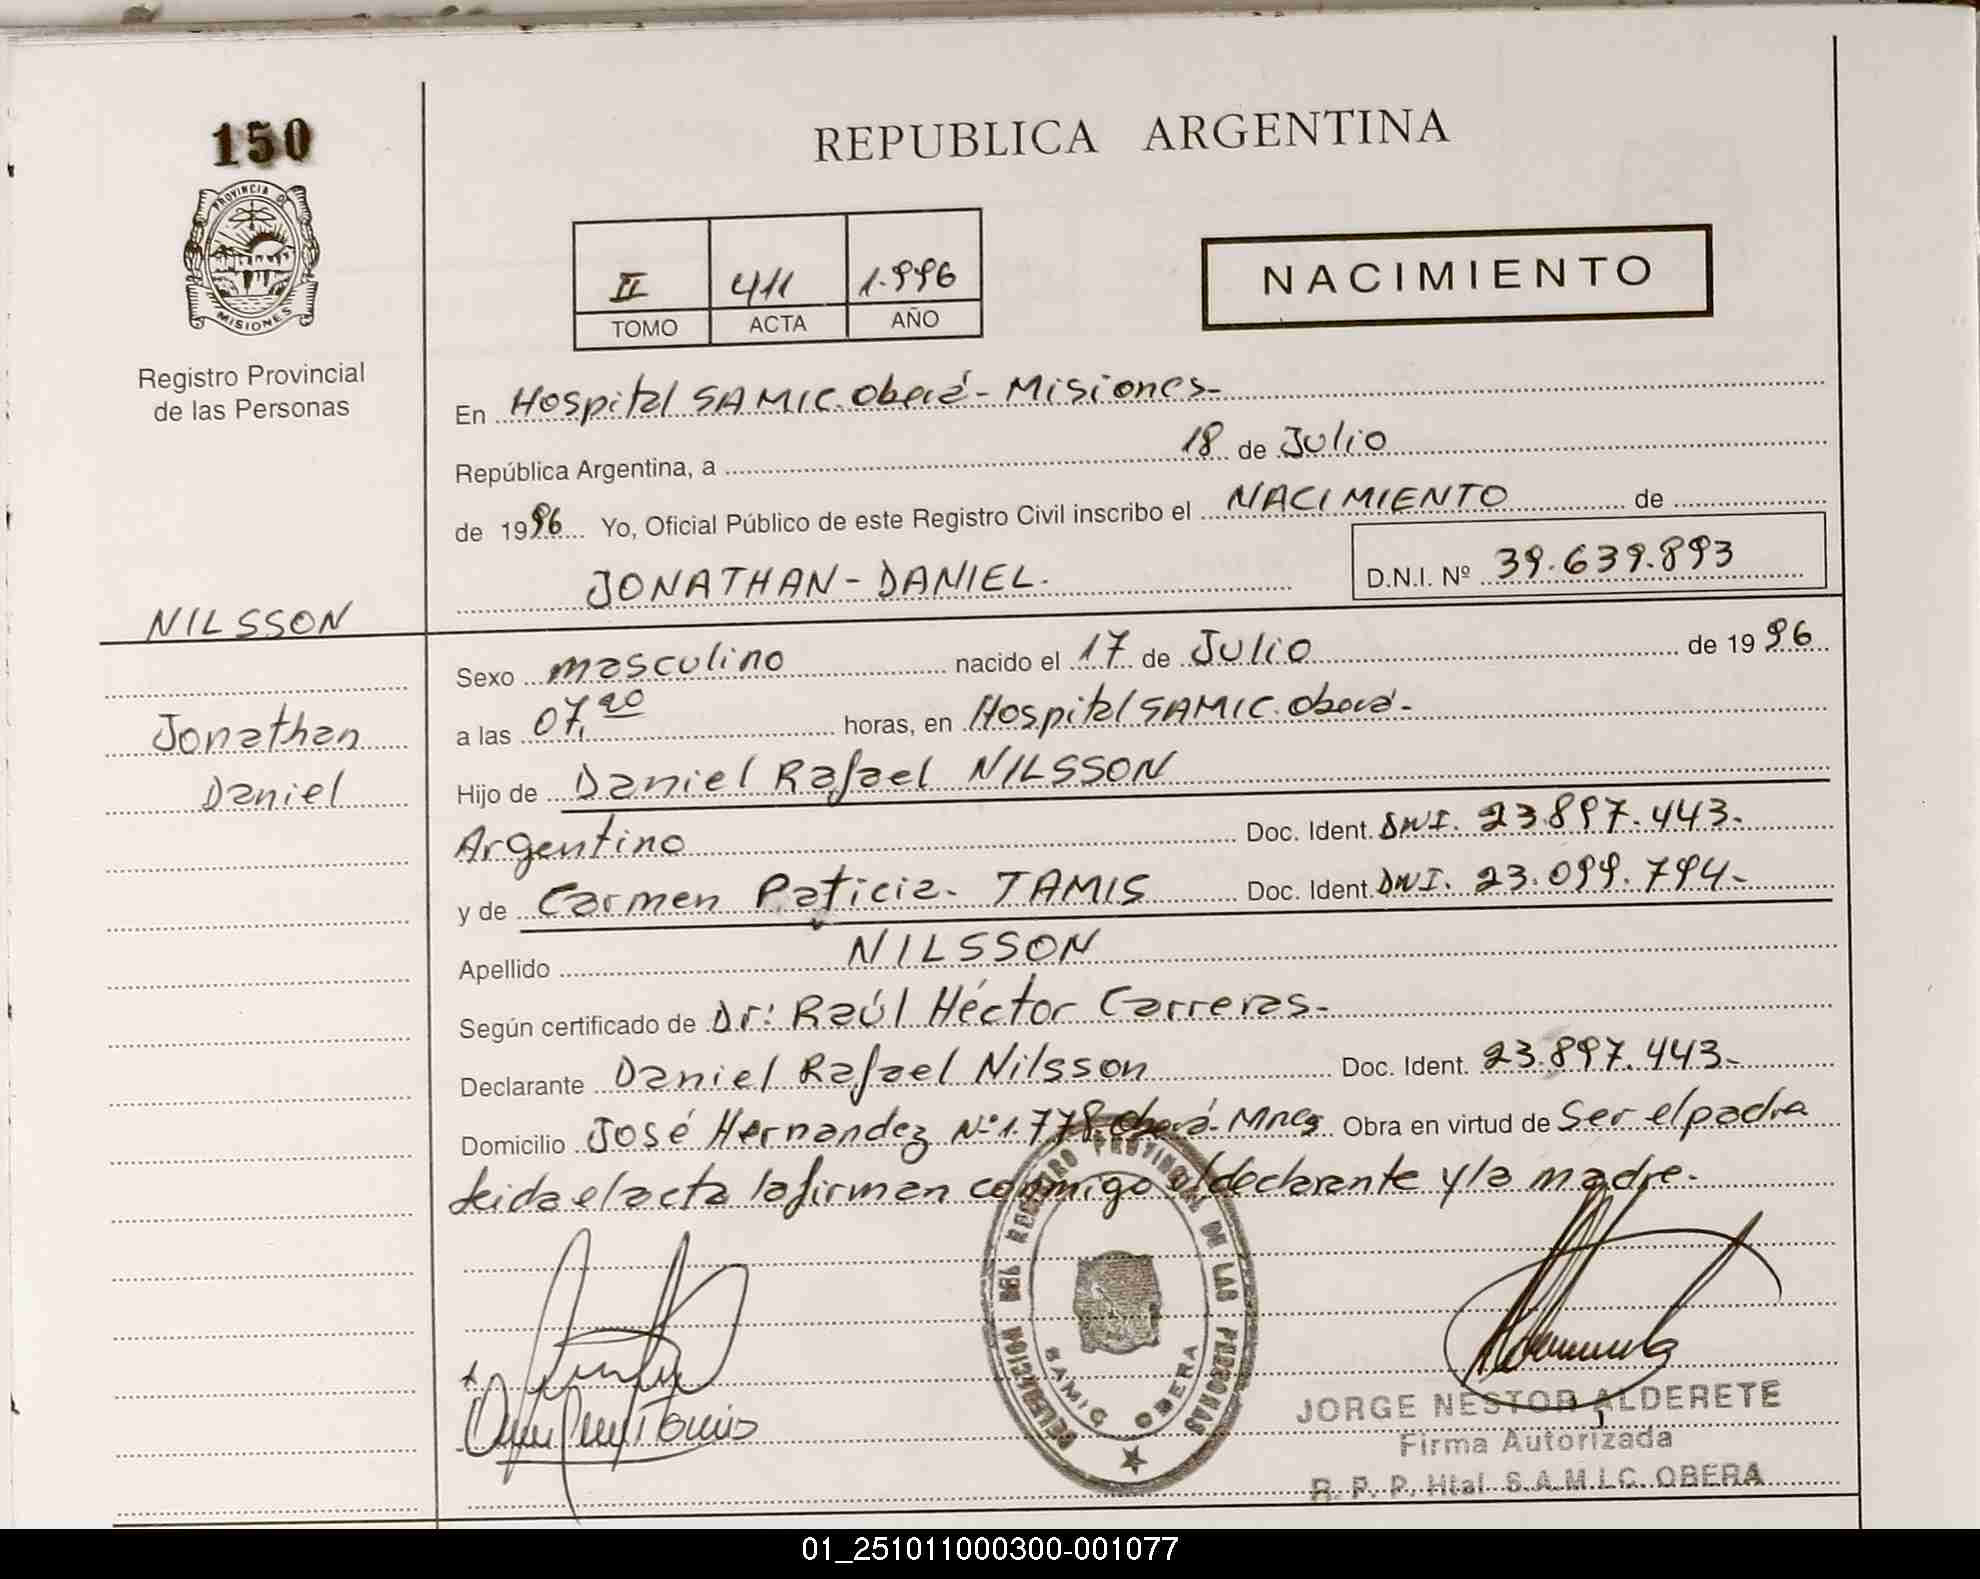 150
PROVINCIA DE
MISIONES
Registro Provincial
de las Personas
NILSSON
Jonathan
Daniel
REPUBLICA ARGENTINA
II 411 1.996
TOMO ACTA AÑO
NACIMIENTO
En Hospital SAMIC. Oberá - Misiones-
República Argentina, a 18 de Julio
de 1996 Yo, Oficial Público de este Registro Civil inscribo el NACIMIENTO de
JONATHAN - DANIEL. D.N.I. Nº 39.639.893
Sexo masculino nacido el 17 de Julio de 1996
a las 07,20 horas, en Hospital SAMIC. Oberá-
Hijo de Daniel Rafael NILSSON
Argentino Doc. Ident. DNI. 23.897.443-
y de Carmen Paticia- TAMIS Doc. Ident. DNI. 23.099.794-
Apellido NILSSON
Según certificado de Dr: Raúl Héctor Carreras-
Declarante Daniel Rafael Nilsson Doc. Ident. 23.897.443-
Domicilio José Hernandez Nº 1.778. Oberá- Mnes Obra en virtud de Ser el padre
Leida el acta la firman conmigo el declarante y la madre-
DELEGACION DEL REGISTRO PROVINCIAL DE LAS PERSONAS
SAMIC OBERA
JORGE NESTOR ALDERETE
Firma Autorizada
R. P. P. Htal. S.A.M.I.C. OBERA
01_251011000300-001077